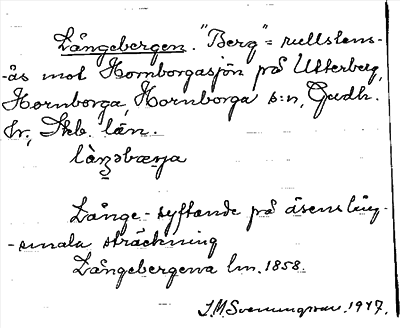 Långebergen. "Berg" = rullstens-
-ås mot Hornborgasjön på Utterberg,
Hornborga, Hornborga s:n, Gudh.
hr., Skb. län.
làŋəbærja
Långe- syftande på åsens lång-
-smala sträckning
Långebergena lm. 1858.
J.M. Svenungsson. 1947.